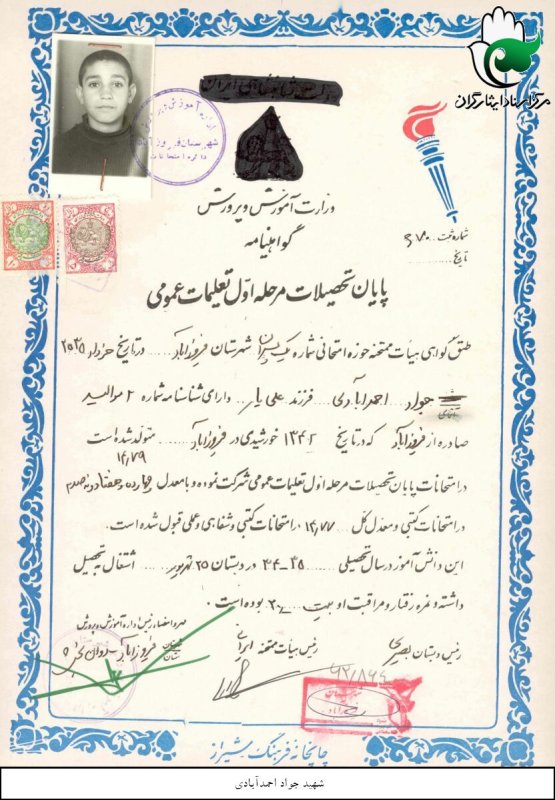 مرکز اسناد ایثارگران
وزارت آموزش و پرورش
گواهینامه
شماره ثبت
تاریخ
پایان تحصیلات مرحله اول تعلیمات عمومی
طبق گواهی هیات ممتحنه حوزه امتحانی شماره یک پسران شهرستان فیروزآباد در تاریخ خرداد ۲۵۳۵
جواد احمدآبادی فرزند علی یار دارای شناسنامه شماره ۲ موالید
صادره از فیروزآباد که در تاریخ ۱۳۴۲ خورشیدی در فیروزآباد متولد شده است
۱۴/۷۹
در امتحانات پایان تحصیلات مرحله اول تعلیمات عمومی شرکت نموده و با معدل چهارده و هفتاد و نه صدم
در امتحانات کتبی و معدل کل ۱۴/۷۷ در امتحانات کتبی و شفاهی و عملی قبول شده است.
این دانش آموز در سال تحصیلی ۳۵-۳۴ در دبستان ۲۵ شهریور اشتغال به تحصیل
داشته و نمره رفتار و مراقبت او بیست ۲۰ بوده است.
مهر و امضاء رئیس اداره آموزش و پرورش
شهرستان فیروزآباد
رئیس هیات ممتحنه ایرانی
رئیس دبستان
چاپخانه فرهنگ شیراز
شهید جواد احمدآبادی